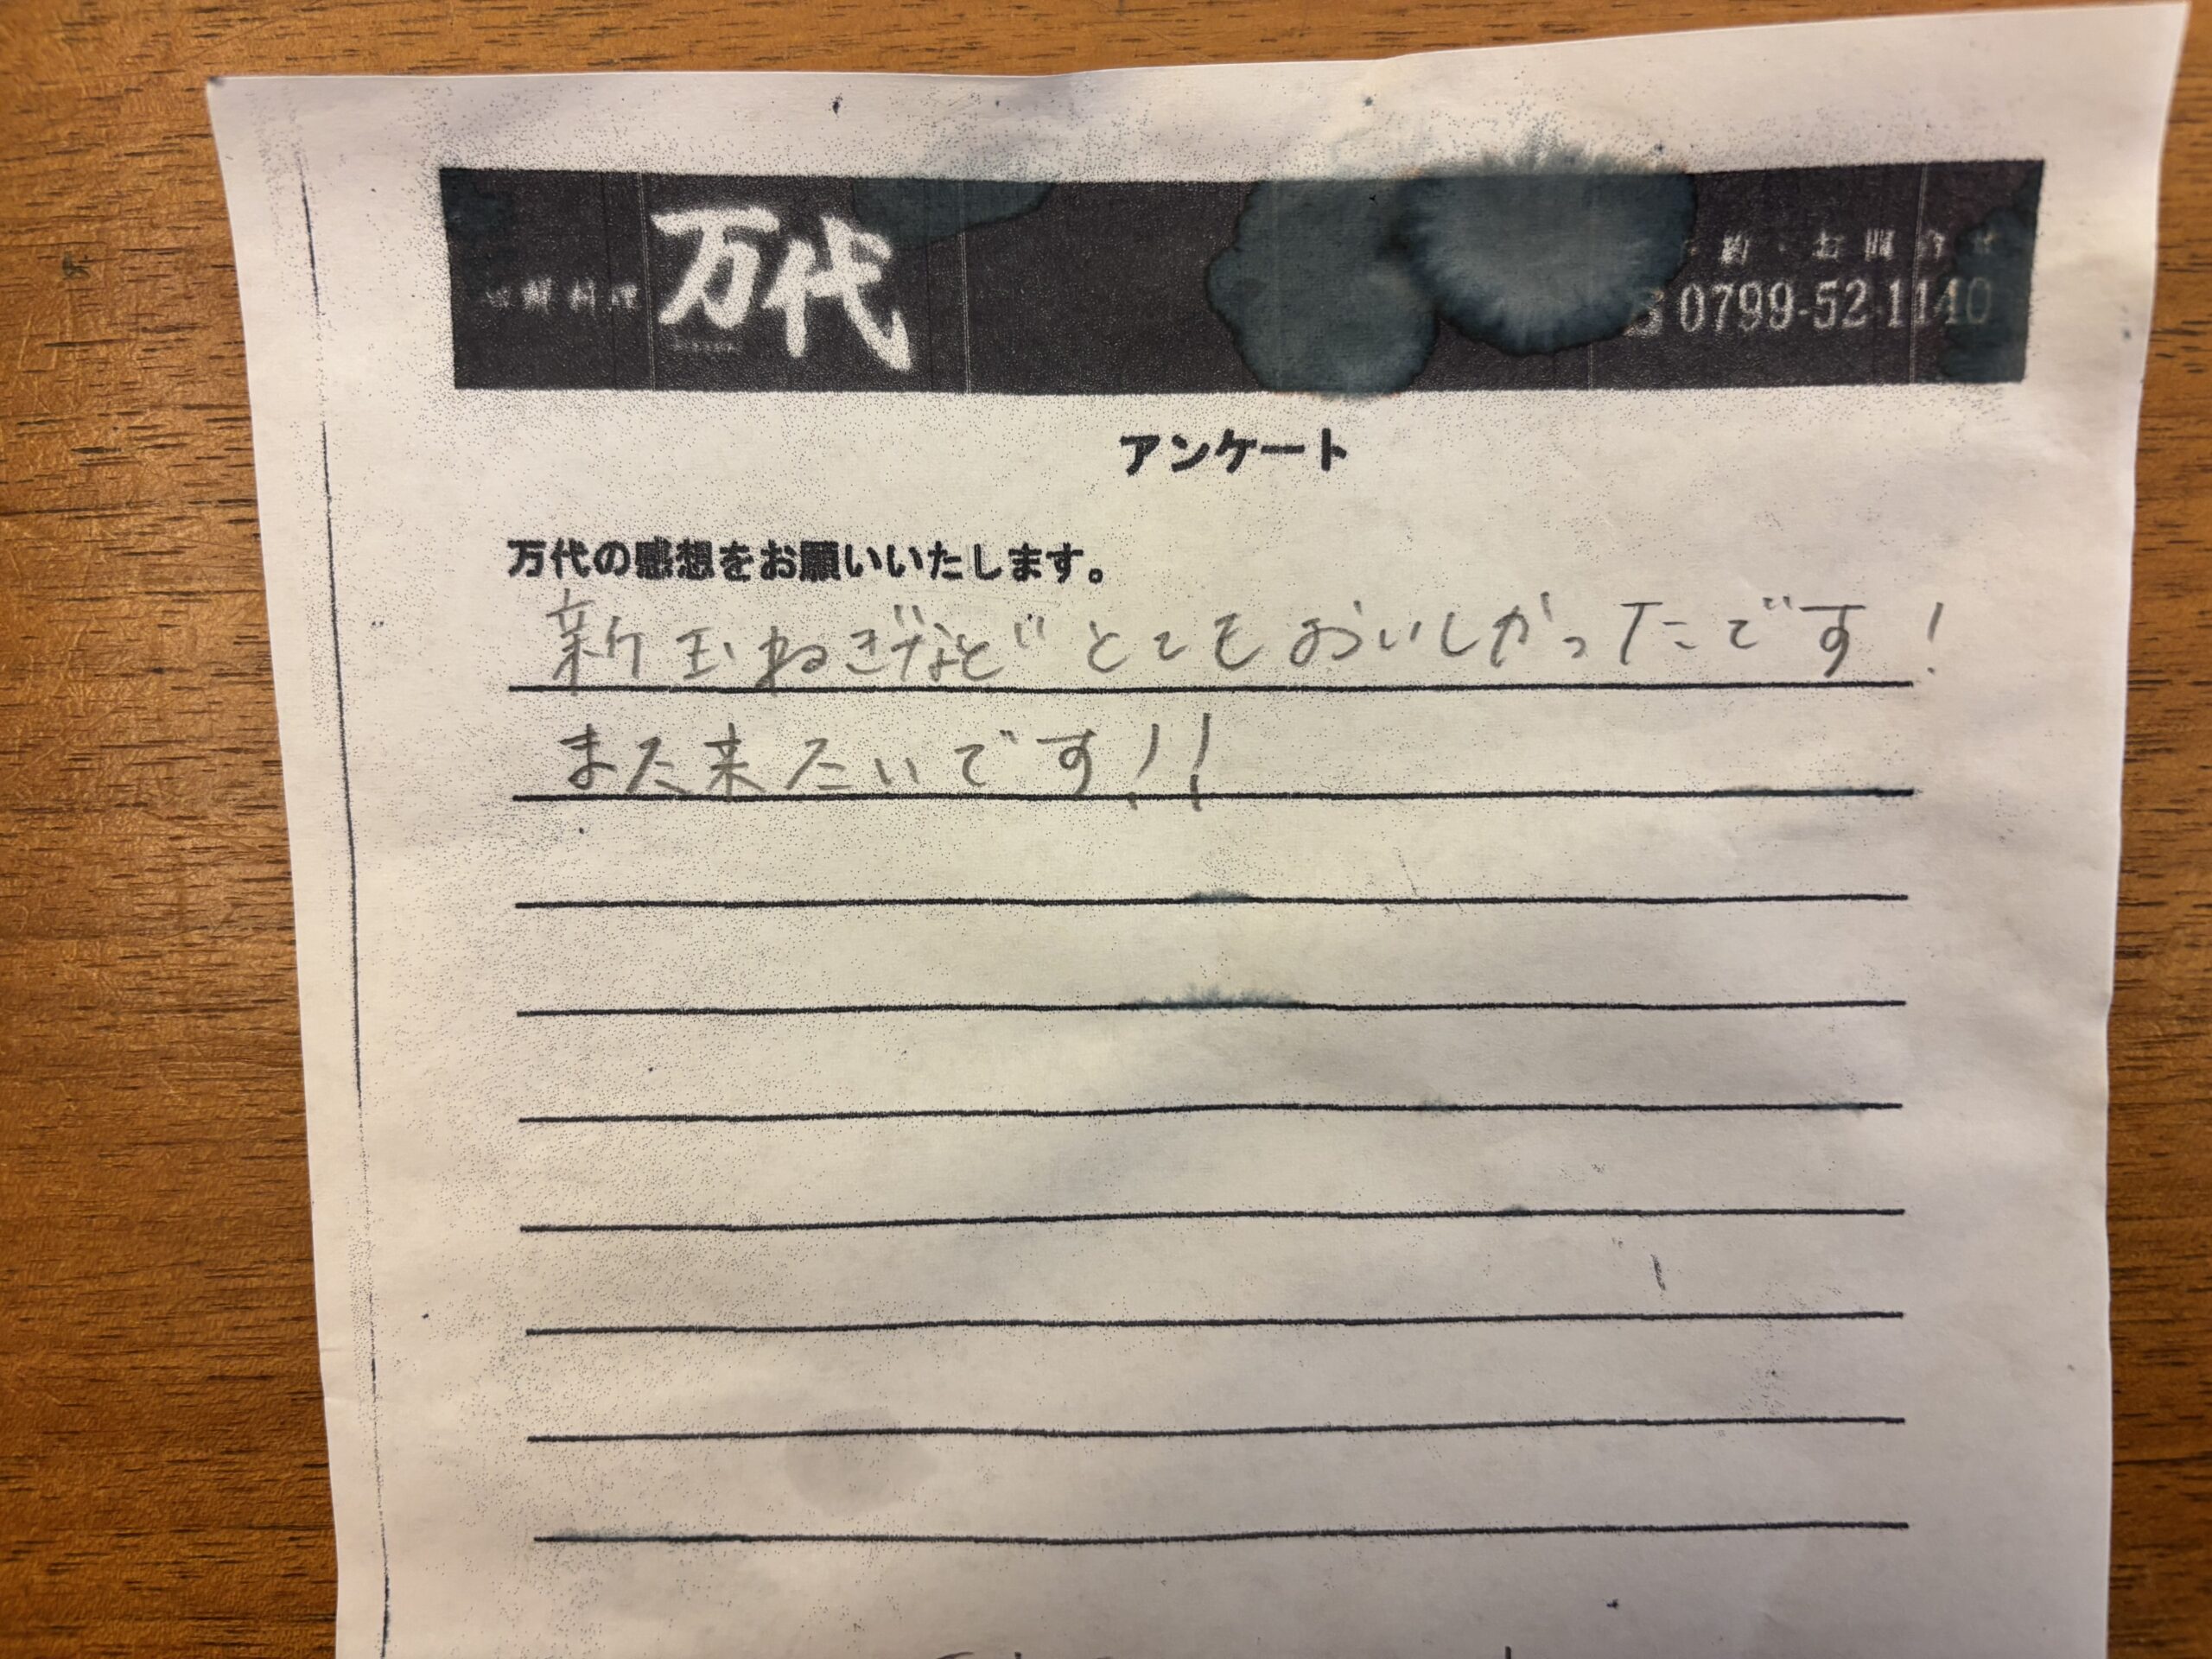 万代
0799-52-1140
アンケート
万代の感想をお願いいたします。
新玉ねぎなどとてもおいしかったです!
また来たいです!!